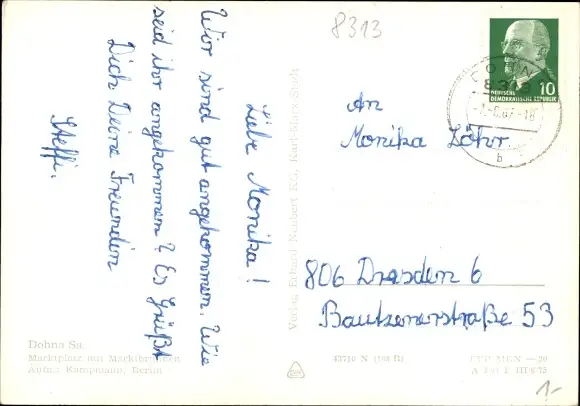 8313
Liebe Monika!
Wir sind gut angekommen. Wie
seid ihr angekommen? Es Grüßt
Dich Deine Freundin
Steffi.
DOHNA
8313
-6.67-18
b
10
DEUTSCHE
DEMOKRATISCHE REPUBLIK
An
Monika Löhr
806 Dresden 6
Bautzenerstraße 53
Verlag Erhard Neubert KG, Karl-Marx-Stadt
Dohna Sa.
Marktplatz mit Marktbrunnen
Aufn. Kampmann, Berlin
A 1 III/6/75
1-